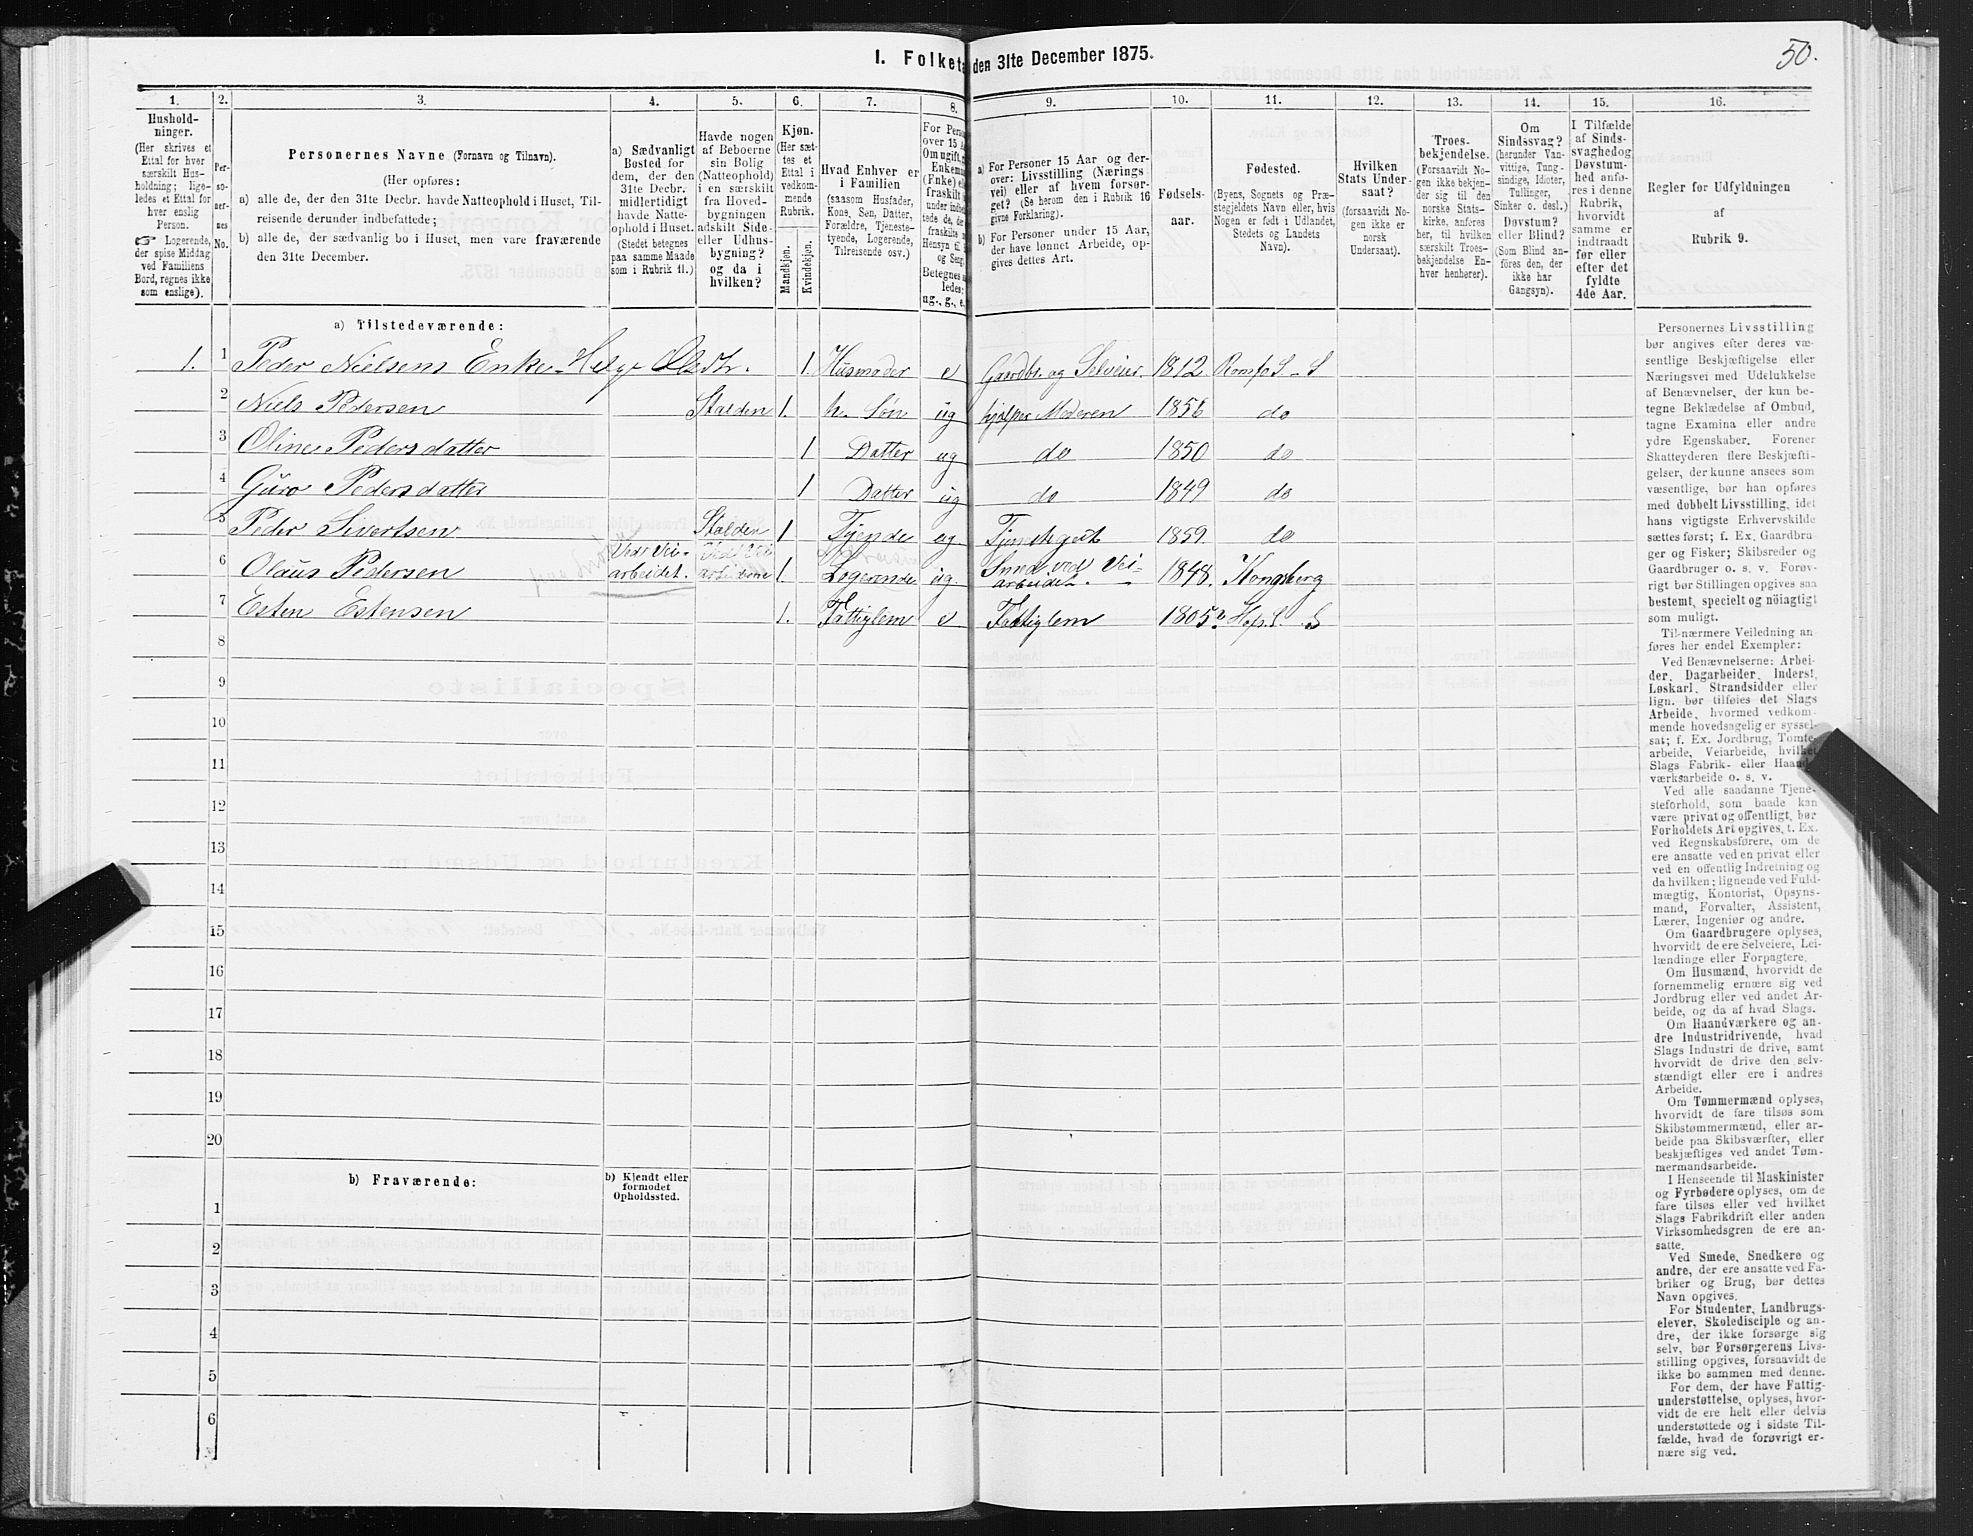 50.
1. Folketæ den 31te December 1875.
1. 2. 3. 4. 5. 6. 7. 8. 9. 10. 11. 12. 13. 14. 15. 16.
Hushold-
ninger.
(Her skrives et
Ettal for hver
særskilt Hus-
holdning; lige-
ledes et Ettal for
hver enslig
Person.
Logerende,
der spise Middag
ved Familiens
Bord, regnes ikke
som enslige).
Per-
so-
ner-
nes
No.
Personernes Navne (Fornavn og Tilnavn).
(Her opføres:
a) alle de, der den 31te Decbr. havde Natteophold i Huset, Til-
reisende derunder indbefattede;
b) alle de, der sædvanlig bo i Huset, men vare fraværende
den 31te December.
a) Sædvanligt
Bosted for
dem, der den
31te Decbr.
midlertidigt
havde Natte-
ophold i Huset.
(Stedet betegnes
paa samme Maade
som i Rubrik 11.)
Havde nogen
af Beboerne
sin Bolig
(Natteophold)
i en særskilt
fra Hoved-
bygningen
adskilt Side-
eller Udhus-
bygning?
og da i
hvilken?
Kjøn.
(Her sæt-
tes et
Ettal i
vedkom-
mende
Rubrik.
Mandkjøn.
Kvindekjøn.
Hvad Enhver er
i Familien
(saasom Husfader,
Kone, Søn, Datter,
Forældre, Tjeneste-
tyende, Logerende,
Tilreisende osv.)
For Perso
over 15 A
Om ugift,
Enkem
(Enke)
fraskilt
under indbe
tede de, de
fraskilte
Hensyn til
og Seng
Betegnes
ledes:
ug., g., e.
a) For Personer 15 Aar og der-
over: Livsstilling (Nærings
vei) eller af hvem forsør-
get? (Se herom den i Rubrik 16
givne Forklaring).
b) For Personer under 15 Aar,
der have lønnet Arbeide, op-
gives dettes Art.
Fødsels-
aar.
Fødested.
(Byens, Sognets og Præ-
stegjeldets Navn eller, hvis
Nogen er født i Udlandet,
Stedets og Landets
Navn).
Hvilken
Stats Under-
saat?
(forsaavidt No-
gen ikke er
norsk
Undersaat).
Troes-
bekjendelse.
(Forsaavidt No-
gen ikke bekjen-
der sig til den
norske Stats-
kirke, anføres
her, til hvilken
særskilt Troes-
bekjendelse En-
hver henhører).
Om
Sindssvag?
(herunder Van-
vittige, Tung-
sindige, Idioter,
Tullinger,
Sinker o. desl.)
Døvstum?
eller Blind?
(Som Blind an-
føres den, der
ikke har
Gangsyn).
I Tilfælde
af Sinds-
svaghedog
Døvstum-
hed anfø-
res i denne
Rubrik,
hvorvidt
samme er
indtraadt
før eller
efter det
fyldte
4de Aar.
Regler for Udfyldningen
af
Rubrik 9.
a) Tilstedeværende:
1. 1 Peder Nielsens Enke Helge Olsdtr. 1 Husmoder e Gaardbr. og Selveier. 1812 Romfo S - S
2 Niels Pedersen Stalden 1. h. Søn ug hjælper Moderen 1856 do
3 Oline Pedersdatter 1 Datter ug do 1850 do
4 Guro Pedersdatter 1 Datter ug do 1849 do
5 Peder Sivertsen Stalden 1 Tjende ug Tjenestegut 1859. do
6 Olaus Pedersen Ved Vei- arbeidet. 1. Logerende ug. Smed ved Vei- arbeidet. 1848. Kongsberg
7 Esten Estensen 1. Fattiglem e Fattiglem 1805 S
8
9
10
11
12
13
14
15
16
17
18
19
20
b) Fraværende:
b) Kjendt eller
formodet
Opholdssted.
1
2
3
4
5
6
Personernes Livsstilling
bør angives efter deres væ-
sentlige Beskjæftigelse eller
Næringsvei med Udelukkelse
af Benævnelser, der kun be-
tegne Beklædelse af Ombud,
tagne Examina eller andre
ydre Egenskaber. Forener
Skatteyderen flere Beskjæfti-
gelser, der kunne ansees som
væsentlige, bør han opføres
med dobbelt Livsstilling, idet
hans vigtigste Erhvervskilde
sættes først; f. Ex. Gaardbru-
ger og Fisker; Skibsreder og
Gaardbruger o. s. v. Forøv-
rigt bør Stillingen opgives saa
bestemt, specielt og nöiagtigt
som muligt.
Til nærmere Veiledning an-
føres her endel Exempler:
Ved Benævnelserne: Arbei-
der, Dagarbeider, Inderst,
Løskarl, Strandsidder eller
lign. bør tilføies det Slags
Arbeide, hvormed vedkom-
mende hovedsagelig er syssel-
sat; f. Ex. Jordbrug, Tomte-
arbeide, Veiarbeide, hvilket
Slags Fabrik- eller Haand-
værksarbeide o. s. v.
Ved alle saadanne Tjene-
steforhold, som baade kan
være privat og offentligt, bør
Forholdets Art opgives, t. Ex.
ved Regnskabsførere, om de
ere ansatte ved en privat eller
ved en offentlig Indretning og
da hvilken; lignende ved Fuld-
mægtig, Kontorist, Opsyns-
mand, Forvalter, Assistent,
Lærer, Ingeniør og andre.
Om Gaardbrugere oplyses,
hvorvidt de ere Selveiere, Lei-
lændinge eller Forpagtere.
Om Husmænd, hvorvidt de
fornemmelig ernære sig ved
Jordbrug eller ved andet Ar-
beide, og da af hvad Slags.
Om Haandværkere og an-
dre Industridrivende, hvad
Slags Industri de drive, samt
hvorvidt de drive den selv-
stændigt eller ere i andres
Arbeide.
Om Tømmermænd oplyses,
hvorvidt de fare tilsøs som
Skibstømmermænd, eller ar-
beide paa Skibsværfter, eller
beskjæftiges ved andet Tøm-
mermandsarbeide.
I Henseende til Maskinister
og Fyrbødere oplyses, om de
fare tilsøs eller ved hvilket
Slags Fabrikdrift eller anden
Virksomhedsgren de ere an-
satte.
Ved Smede, Snedkere og
andre, der ere ansatte ved Fa-
briker og Brug, bør dettes
Navn opgives.
For Studenter, Landbrugs-
elever, Skoledisciple og an-
dre, der ikke forsørge sig
selv, bør Forsørgerens Livs-
stilling opgives, forsaavidt de
ikke bo sammen med denne.
For dem, der have Fattig-
understøttelse, oplyses, hvor-
vidt de ere helt eller delvis
understøttede og i sidste Til-
fælde, hvad de forøvrigt er-
nære sig ved.